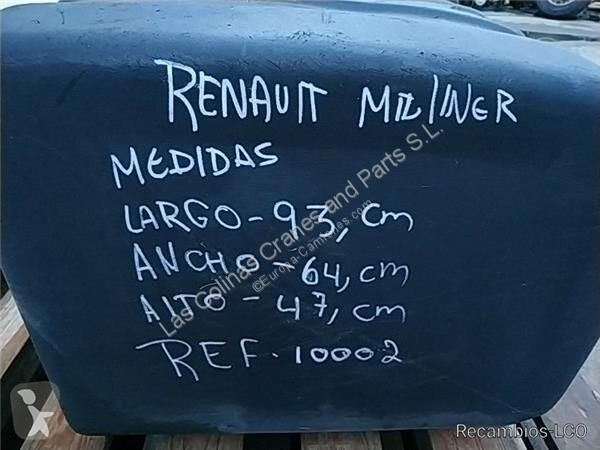 RENAUIT MIL/INER
MEDIDAS
LARGO - 93, cm
ANCHO - 64, cm
AITO - 47, cm
REF. 10002
Las Colinas Cranes and Parts S.L.
©Europa-Camiones.com
Recambios-LCO